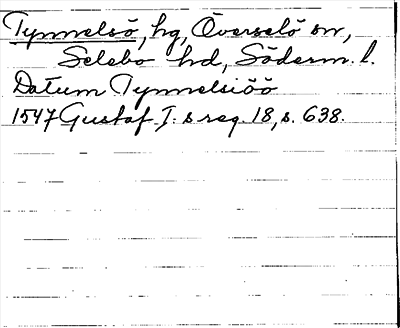 Tynnelsö, hg, Överselö sn,
Selebo hd, Söderm. l.
Datum Tynnelsiöö
1547 Gustaf I:s reg. 18, s. 638.